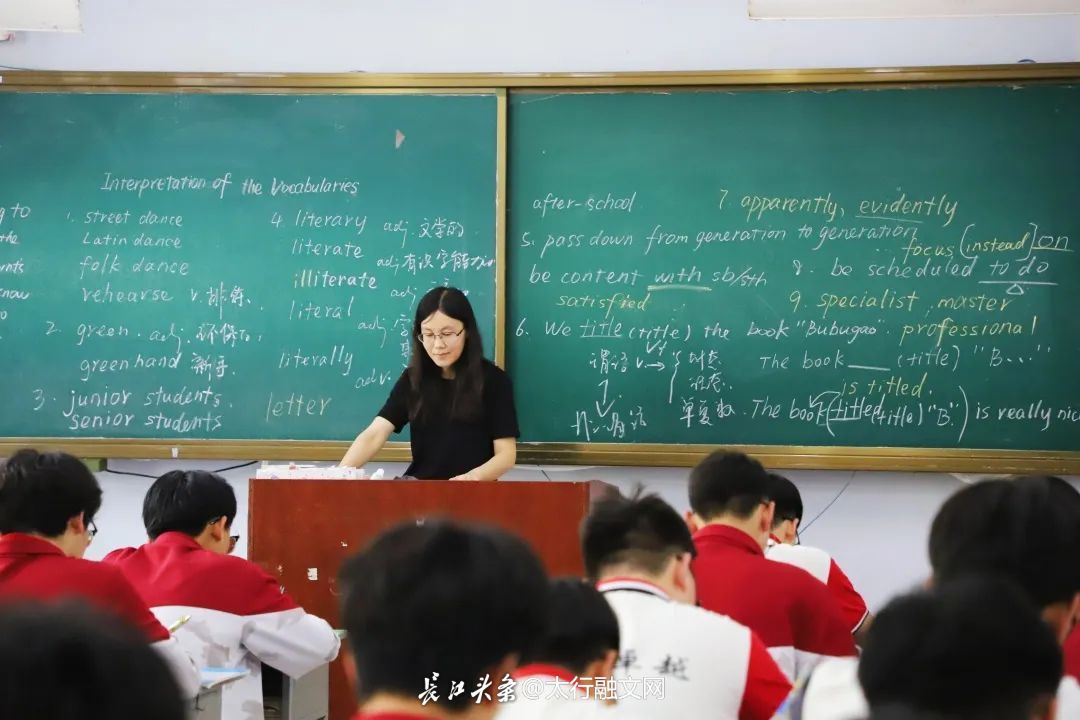 Interpretation of the Vocabularies
1. street dance
Latin dance
folk dance
rehearse v. 排练、
2. green. adj. 环保的,
greenhand 新手.
3. junior students.
senior students
4. literary adj. 文学的
literate adj. 有识字能力的
illiterate adj.
literal adj. 字
literally adv.
letter
after-school
5. pass down from generation to generation
be content with sb/sth
satisfied
6. We title (title) the book "Bubugao
谓语 v. → 时态
语态.
单复数.
7. apparently, evidently
focus (instead) on
8. be scheduled to do
9. specialist, master
professional
The book ___ (title) "B...."
is titled.
The book (titled (title) "B.") is really nic
卓越
长江头条 @太行融文网